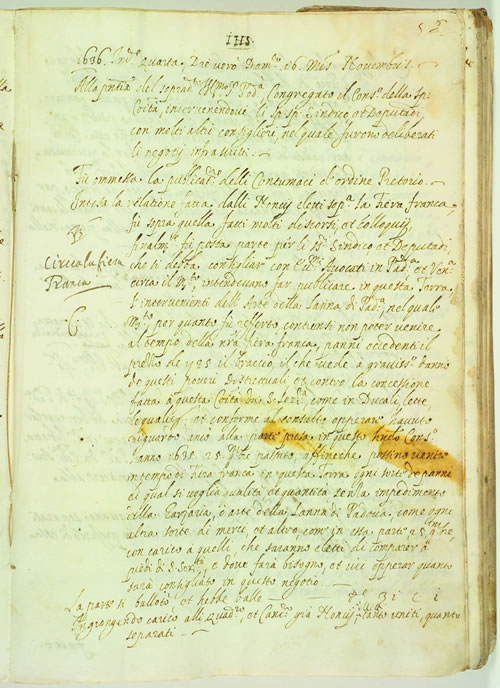 52
IHS
1636. Ind.e quarta. Die vero Dom.co 16 Mens. Novembris
Alla pntia del soprad.to Ill.mo S.r Pod.a Congregato il Cons.o della sp.
Coità, intervenendovi li sp. sp. Sindico, et Deputadi
con molti altri consiglieri, nel quale furono deliberati
li negotij infrascritti.
Fù ommessa la publicat.ne delli Contumaci d'ordine Pretorio.
Intesa la relatione fatta dalli Honor.li eletti sop.a la Fiera franca,
fù sopra quella fatti molti discorsi, et colloquij
finalm.te fù posta parte per li S.ri Sindico et Deputadi,
Circa la fiera
franca
che si debba consigliar con Ecc.mi Avocati in Pad.a et Ven.a
circa il intendevano far publicare in questa Terra
l'intervenienti dell'Arte della Lanna di Pad.a, nel qual
per quanto fù refferto, contiensi non poter venire
al tempo della nra fiera franca, panni eccedenti il
pretio de il braccio, il che cede à graviss.o danno
de questi poveri Destrettuali, et contro la concessione
fatta à questa Coità da S. Ser.tà come in Ducali, lette,
le quali et conforme al consulto opperar havuto
riguardo anco alla parte presa in questo Cons.o
l'anno 1635. 25. passato, affineche possino venir
in tempo di fiera franca in questa Terra ogni sorte de panni
di qual si voglia qualità, et quantità senza impedimento
della Garzaria, ò arte della Lanna di Padova, come ogni
altra sorte di merci, et altro, come in essa parte
con carico à quelli, che saranno eletti di comparer à
piedi di S. Ser.tà, e dove farà bisogno, et ivi opperar quanto
sarà consigliato in questo negotio.
La parte si ballotò et hebbe balle P.o 31 C. 1
Aggiongendo carico alli già uniti, quanto
separati.